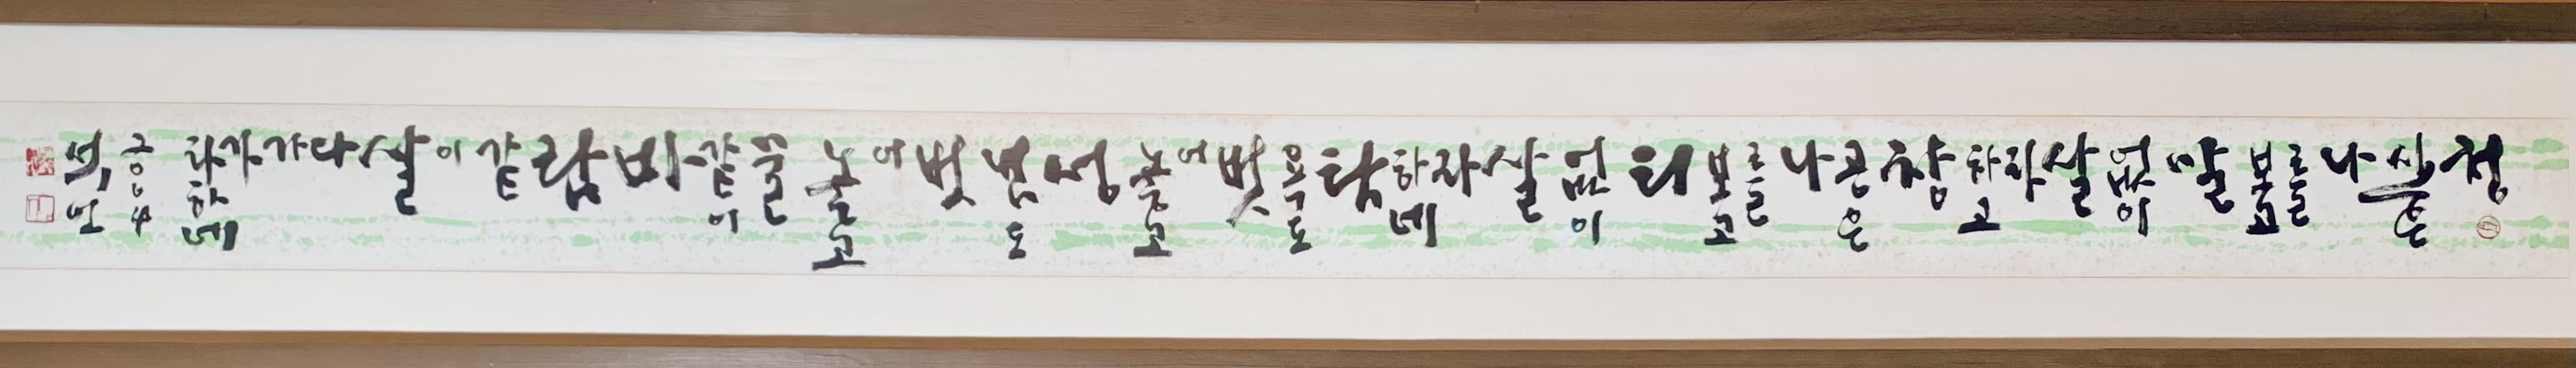 청산은 나를 보고 말없이 살라하고
창공은 나를 보고 티없이 살라하네
탐욕도 벗어놓고 성냄도 벗어놓고
물같이 바람같이 살다가 가라하네
2004